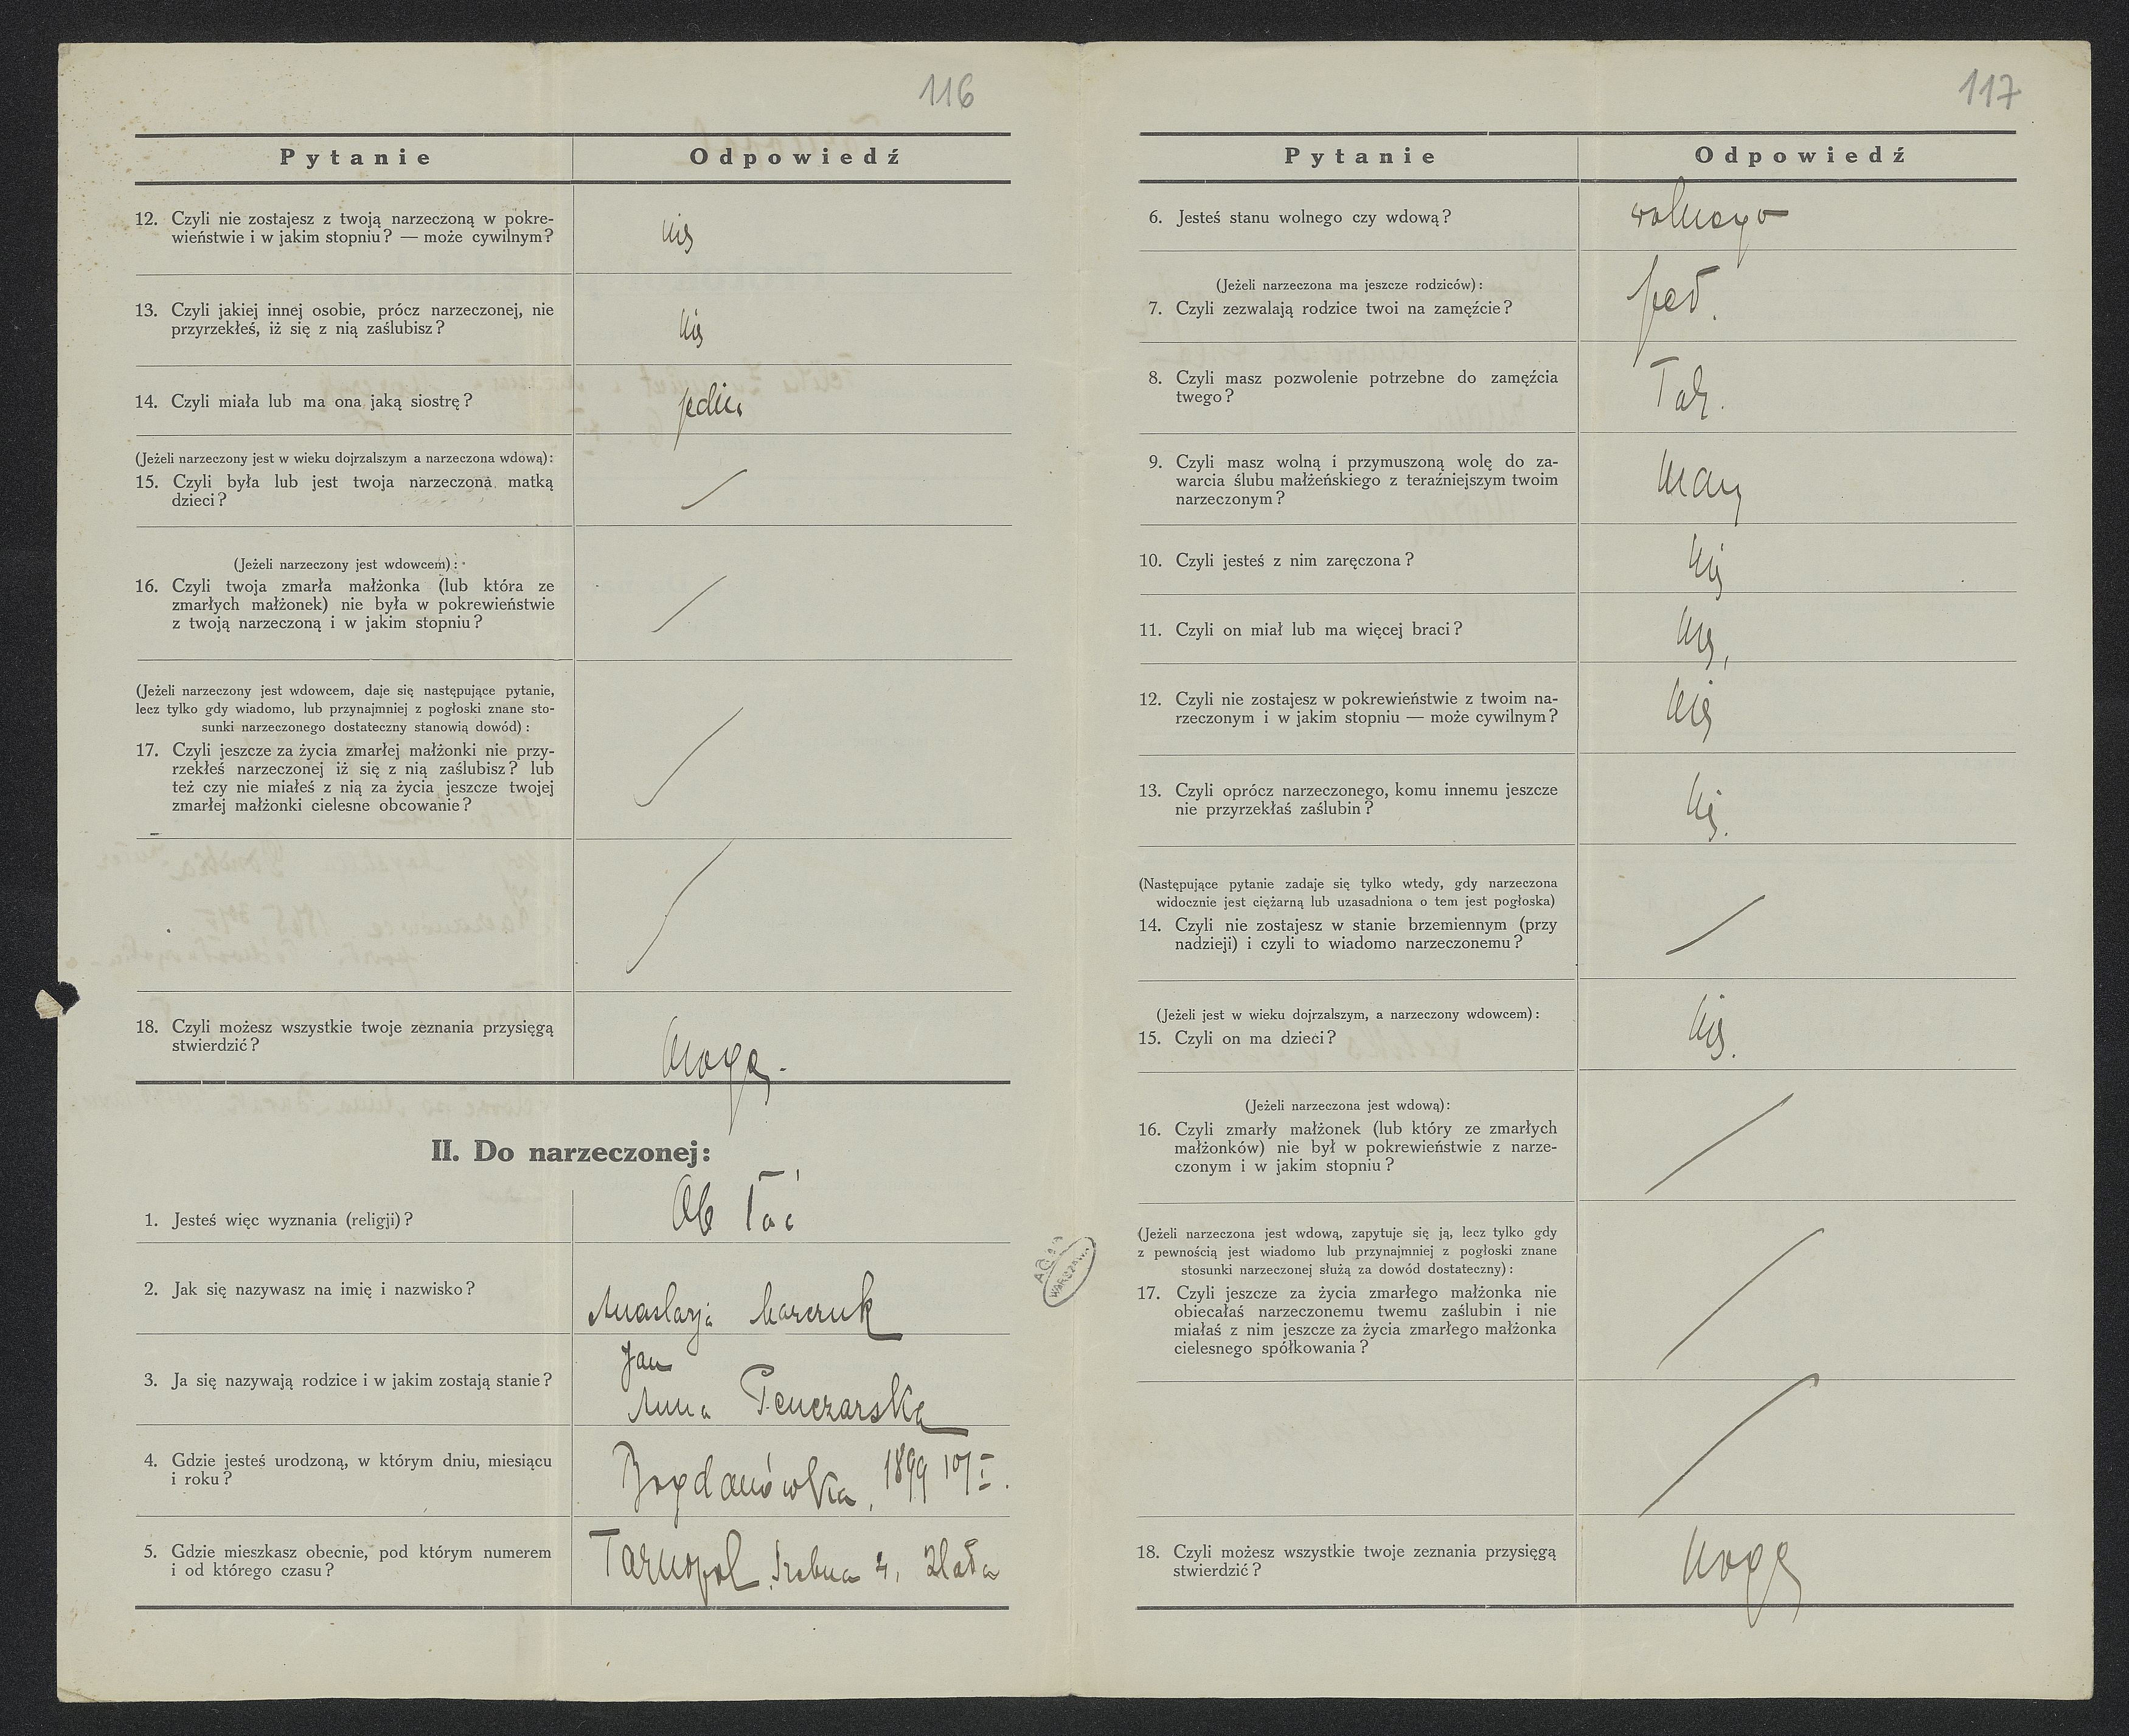 116
Pytanie Odpowiedź
12. Czyli nie zostajesz z twoją narzeczoną w pokre-
wieństwie i w jakim stopniu? — może cywilnym?
nie
13. Czyli jakiej innej osobie, prócz narzeczonej, nie
przyrzekłeś, iż się z nią zaślubisz?
nie
14. Czyli miała lub ma ona jaką siostrę?
(Jeżeli narzeczony jest w wieku dojrzalszym a narzeczona wdową):
15. Czyli była lub jest twoja narzeczoną matką
dzieci?
(Jeżeli narzeczony jest wdowcem):
16. Czyli twoja zmarła małżonka (lub która ze
zmarłych małżonek) nie była w pokrewieństwie
z twoją narzeczoną i w jakim stopniu?
(Jeżeli narzeczony jest wdowcem, daje się następujące pytanie,
lecz tylko gdy wiadomo, lub przynajmniej z pogłoski znane sto-
sunki narzeczonego dostateczny stanowią dowód):
17. Czyli jeszcze za życia zmarłej małżonki nie przy-
rzekłeś narzeczonej iż się z nią zaślubisz? lub
też czy nie miałeś z nią za życia jeszcze twojej
zmarłej małżonki cielesne obcowanie?
18. Czyli możesz wszystkie twoje zeznania przysięgą
stwierdzić?
mogę.
II. Do narzeczonej:
1. Jesteś więc wyznania (religji)?
Ob łać
2. Jak się nazywasz na imię i nazwisko?
Anastazja Marczuk
3. Ja się nazywają rodzice i w jakim zostają stanie?
Jan
Anna Penczarska
4. Gdzie jesteś urodzoną, w którym dniu, miesiącu
i roku?
Bogdanówka, 1899 10/I.
5. Gdzie mieszkasz obecnie, pod którym numerem
i od którego czasu?
Tarnopol, 4, 2 lata
WARSZAWA
117
Pytanie Odpowiedź
6. Jesteś stanu wolnego czy wdową?
wolnego
(Jeżeli narzeczona ma jeszcze rodziców):
7. Czyli zezwalają rodzice twoi na zamęźcie?
8. Czyli masz pozwolenie potrzebne do zamęźcia
twego?
Tak.
9. Czyli masz wolną i przymuszoną wolę do za-
warcia ślubu małżeńskiego z teraźniejszym twoim
narzeczonym?
mam
10. Czyli jesteś z nim zaręczona?
nie
11. Czyli on miał lub ma więcej braci?
nie,
12. Czyli nie zostajesz w pokrewieństwie z twoim na-
rzeczonym i w jakim stopniu — może cywilnym?
nie
13. Czyli oprócz narzeczonego, komu innemu jeszcze
nie przyrzekłaś zaślubin?
nie.
(Następujące pytanie zadaje się tylko wtedy, gdy narzeczona
widocznie jest ciężarną lub uzasadniona o tem jest pogłoska)
14. Czyli nie zostajesz w stanie brzemiennym (przy
nadzieji) i czyli to wiadomo narzeczonemu?
(Jeżeli jest w wieku dojrzalszym, a narzeczony wdowcem):
15. Czyli on ma dzieci?
nie.
(Jeżeli narzeczona jest wdową):
16. Czyli zmarły małżonek (lub który ze zmarłych
małżonków) nie był w pokrewieństwie z narze-
czonym i w jakim stopniu?
(Jeżeli narzeczona jest wdową, zapytuje się ją, lecz tylko gdy
z pewnością jest wiadomo lub przynajmniej z pogłoski znane
stosunki narzeczonej służą za dowód dostateczny):
17. Czyli jeszcze za życia zmarłego małżonka nie
obiecałaś narzeczonemu twemu zaślubin i nie
miałaś z nim jeszcze za życia zmarłego małżonka
cielesnego spółkowania?
18. Czyli możesz wszystkie twoje zeznania przysięgą
stwierdzić?
mogę